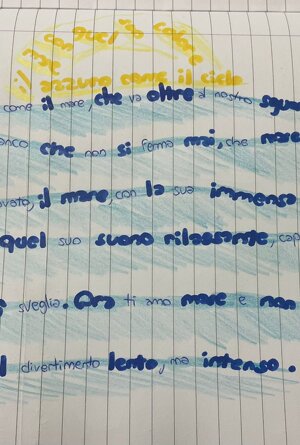 il mare
con quel suo colore
azzurro come il cielo
come il mare, che va oltre il nostro sguar
anco che non si ferma mai, che mare
il mare, con la sua immensa
quel suo suono rilassante, cap
sveglia. Ora ti amo mare e non
l divertimento lento, ma intenso.